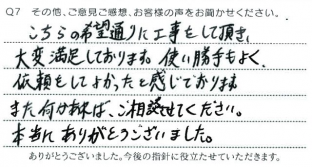 Q7 その他、ご意見ご感想、お客様の声をお聞かせください。
こちらの希望通りに工事をして頂き、
大変満足しております。使い勝手もよく、
依頼をしてよかったと感じております。
また何かあれば、ご相談させてください。
本当にありがとうございました。
ありがとうございました。今後の指針に役立たせていただきます。